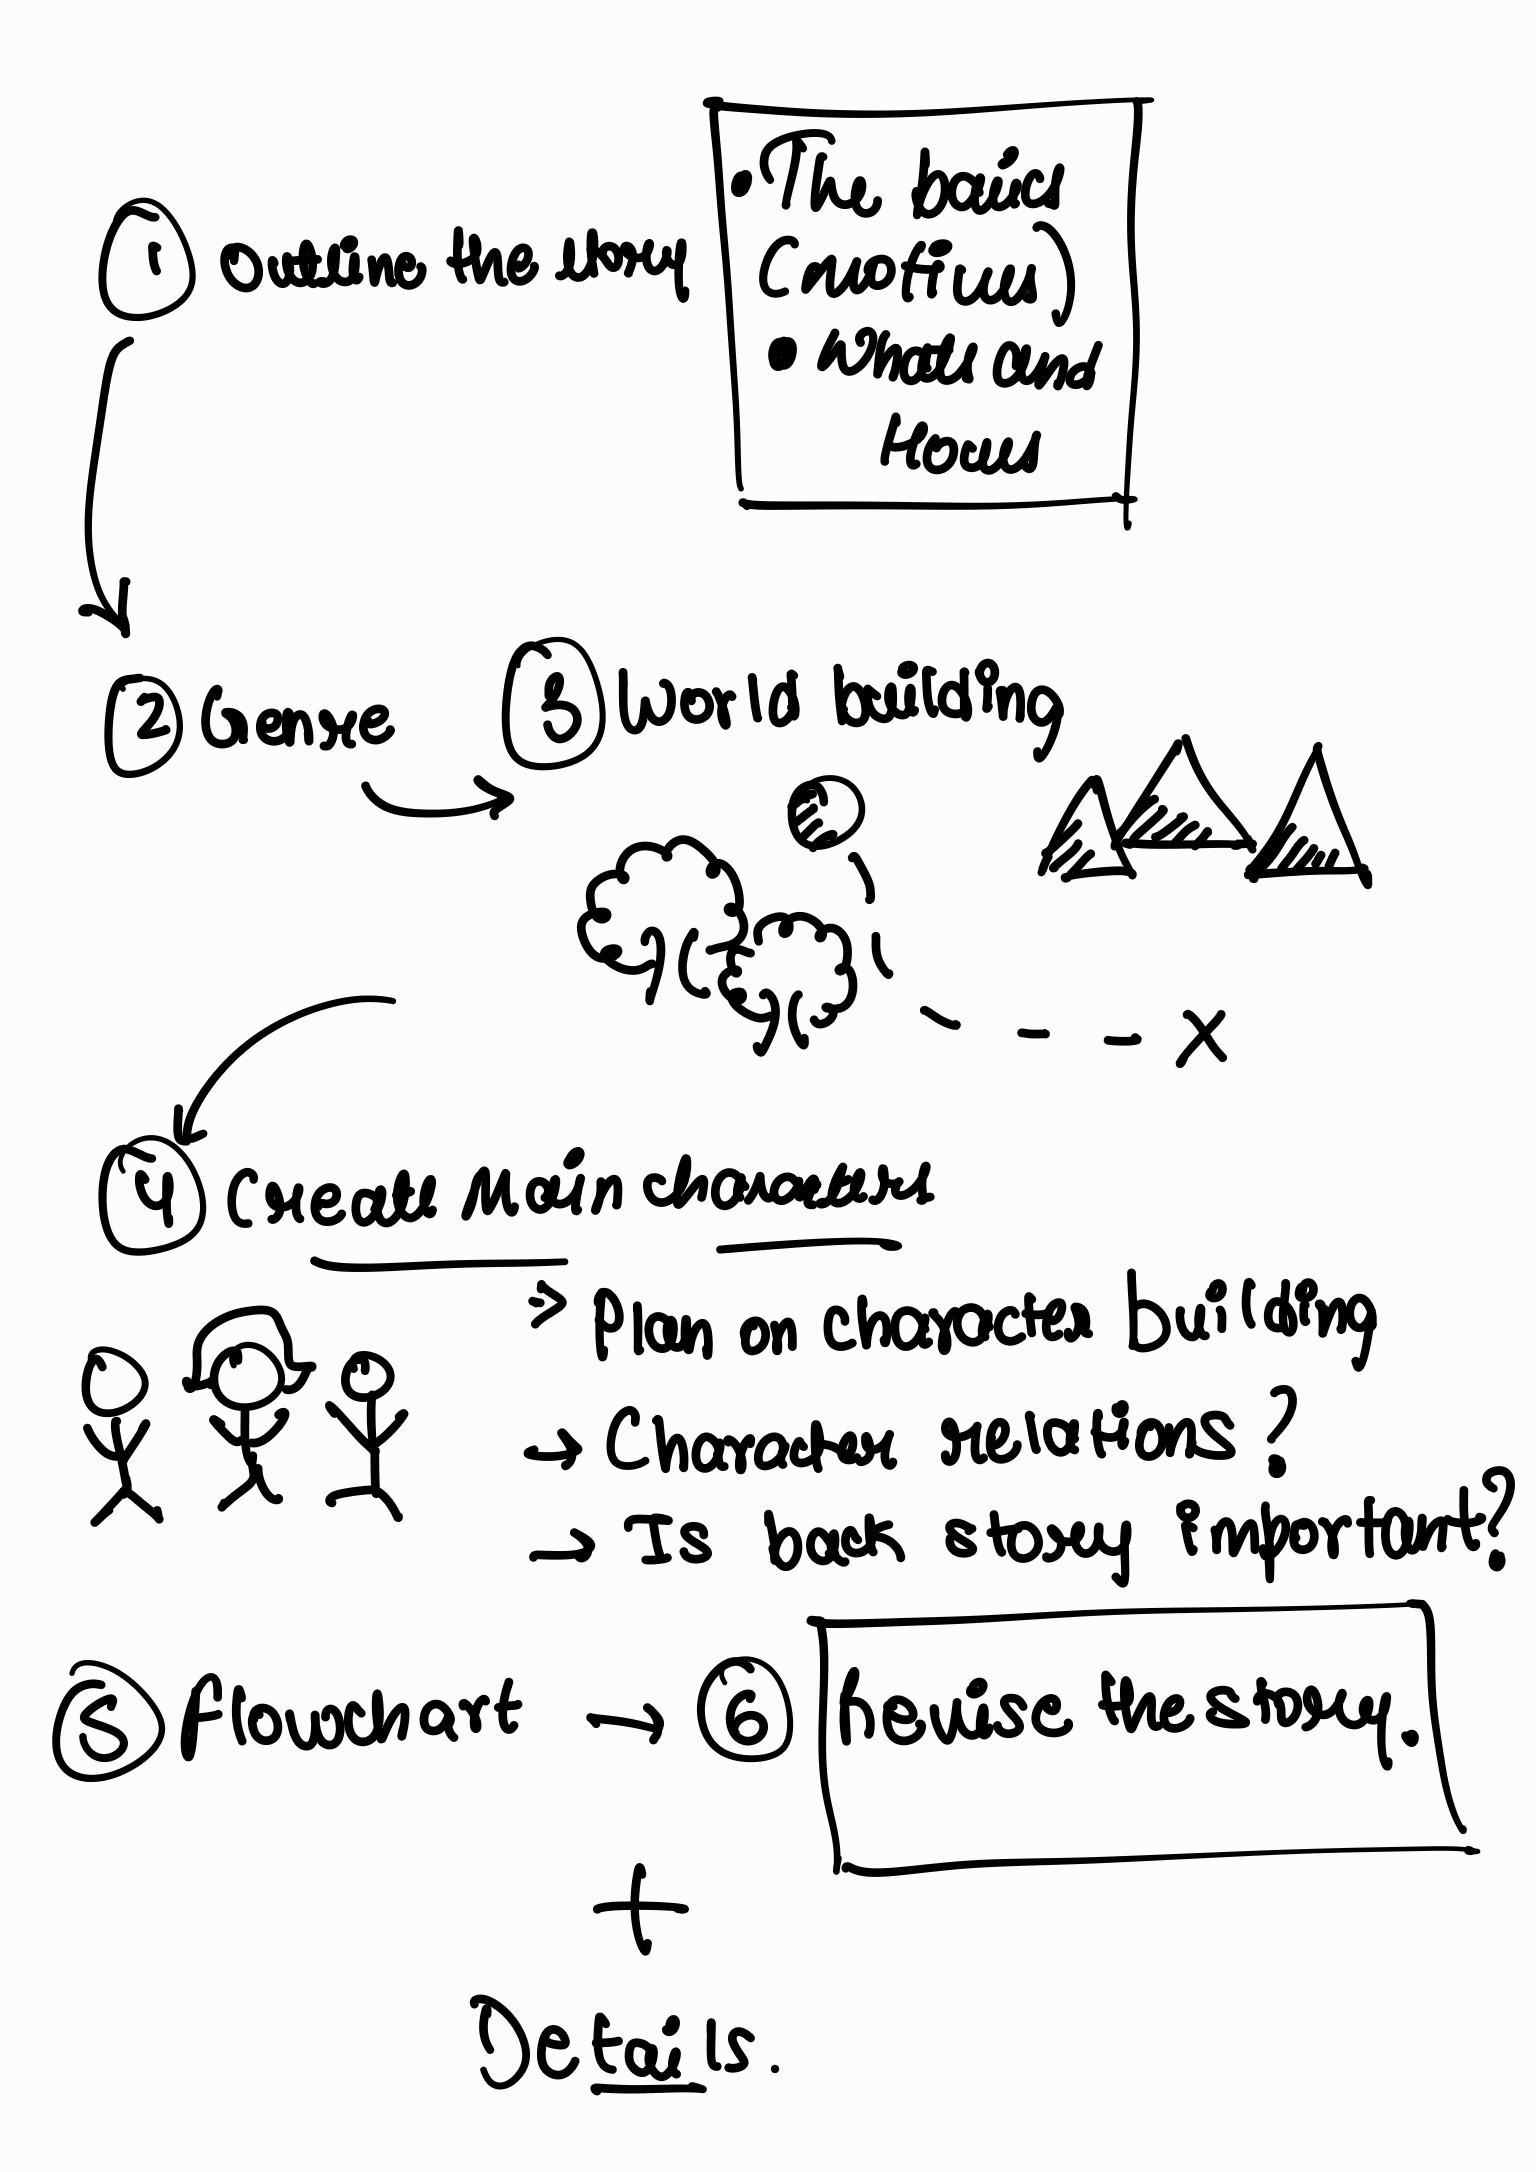 1 Outline the story
• The basics
(motives)
• Whats and
Hows
2 Genre
3 World building
X
4 Create Main characters
→ Plan on character building
→ Character relations?
→ Is back story important?
5 flowchart → 6 Revise the story.
+
Details.